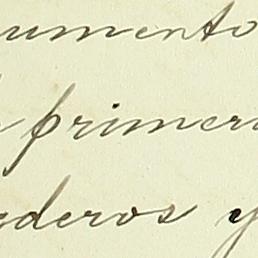 umento
primer
deros y